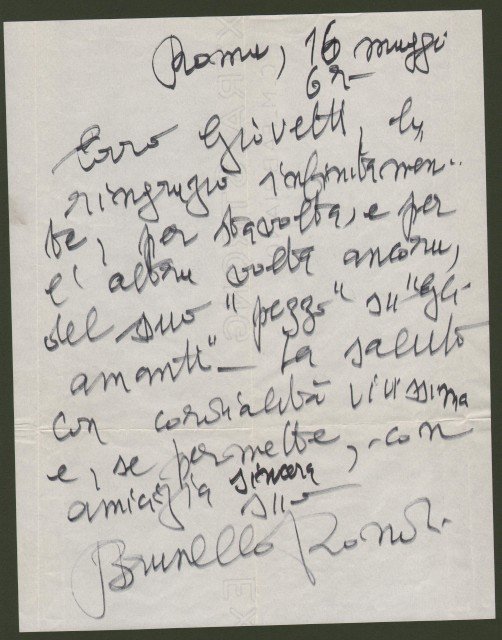 Roma, 16 maggio
62 -
Caro Giovetti, la
ringrazio infinitamen-
te, per stavolta, e per
l'altra volta ancora,
del suo "pezzo" su "Gli
amanti" - La saluto
con cordialità vivissima
e, se permette, con
amicizia sincera
suo
Brunello Rondi